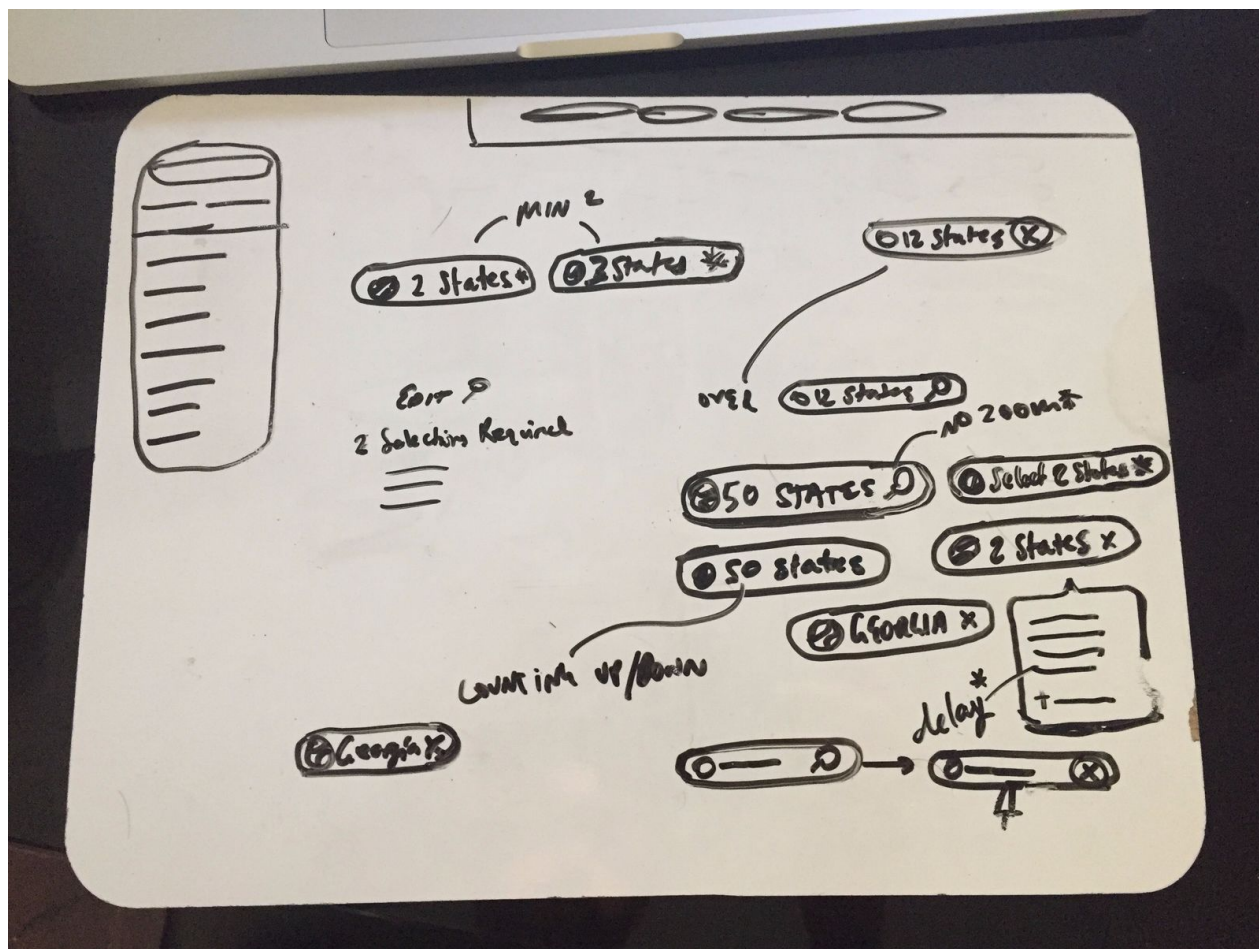 MIN 2
2 States*
2 States *
12 States X
EDIT
2 Selections Required
OVER
12 States
NO ZOOM*
50 STATES
Select 2 States*
50 states
2 States X
GEORGIA X
COUNTING UP/DOWN
delay*
+
Georgia X
X